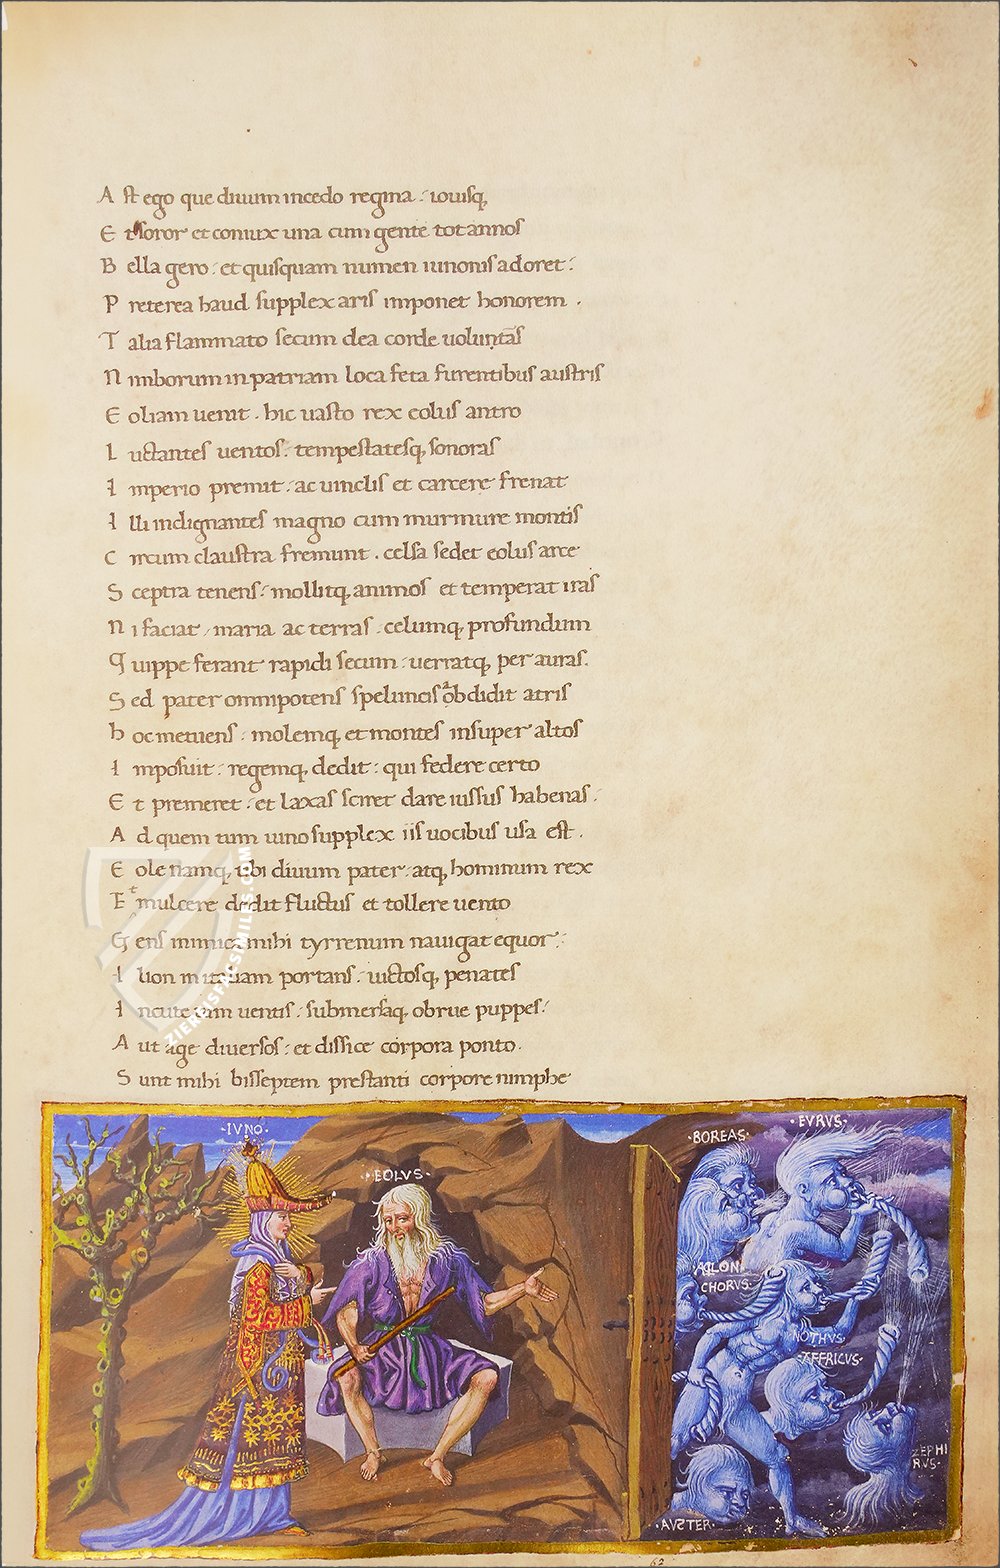 A st ego que diuum incedo regina : iouisq,
E t soror et coniux una cum gente tot annos
B ella gero : et quisquam numen iunonis adoret :
P reterea haud supplex aris imponet honorem .
T alia flammato secum dea corde uolutās
N imborum in patriam loca feta furentibus austris
E oliam uenit . hic uasto rex eolus antro
L uctantes uentos : tempestatesq, sonoras
I mperio premit : ac uinclis et carcere frenat
I lli indignantes magno cum murmure montis
C ircum claustra fremunt . celsa sedet eolus arce
S ceptra tenens : mollitq, animos et temperat iras
N i faciat / maria ac terras . celumq, profundum
Q uippe ferant rapidi secum : uerratq, per auras .
S ed pater omnipotens speluncis abdidit atris
h oc metuens : molemq, et montes insuper altos
I mposuit : regemq, dedit : qui federe certo
E t premeret : et laxas sciret dare iussus habenas :
A d quem tum iuno supplex iis uocibus usa est .
E ole namq, tibi diuum pater . atq, hominum rex
E t mulcere dedit fluctus et tollere uento
G ens inimica mihi tyrrenum nauigat equor :
I lion in italiam portans : uictosq, penates
I ncute uim uentis : submersaq, obrue puppes :
A ut age diuersos : et dissice corpora ponto .
S unt mihi bisseptem prestanti corpore nimphe
·IVNO·
·EOLVS·
·BOREAS·
·EVRVS·
CHORVS·
NOTHVS·
·ZEPHI
RVS·
·AVSTER·
62
ZIEREISFACSIMILES.COM